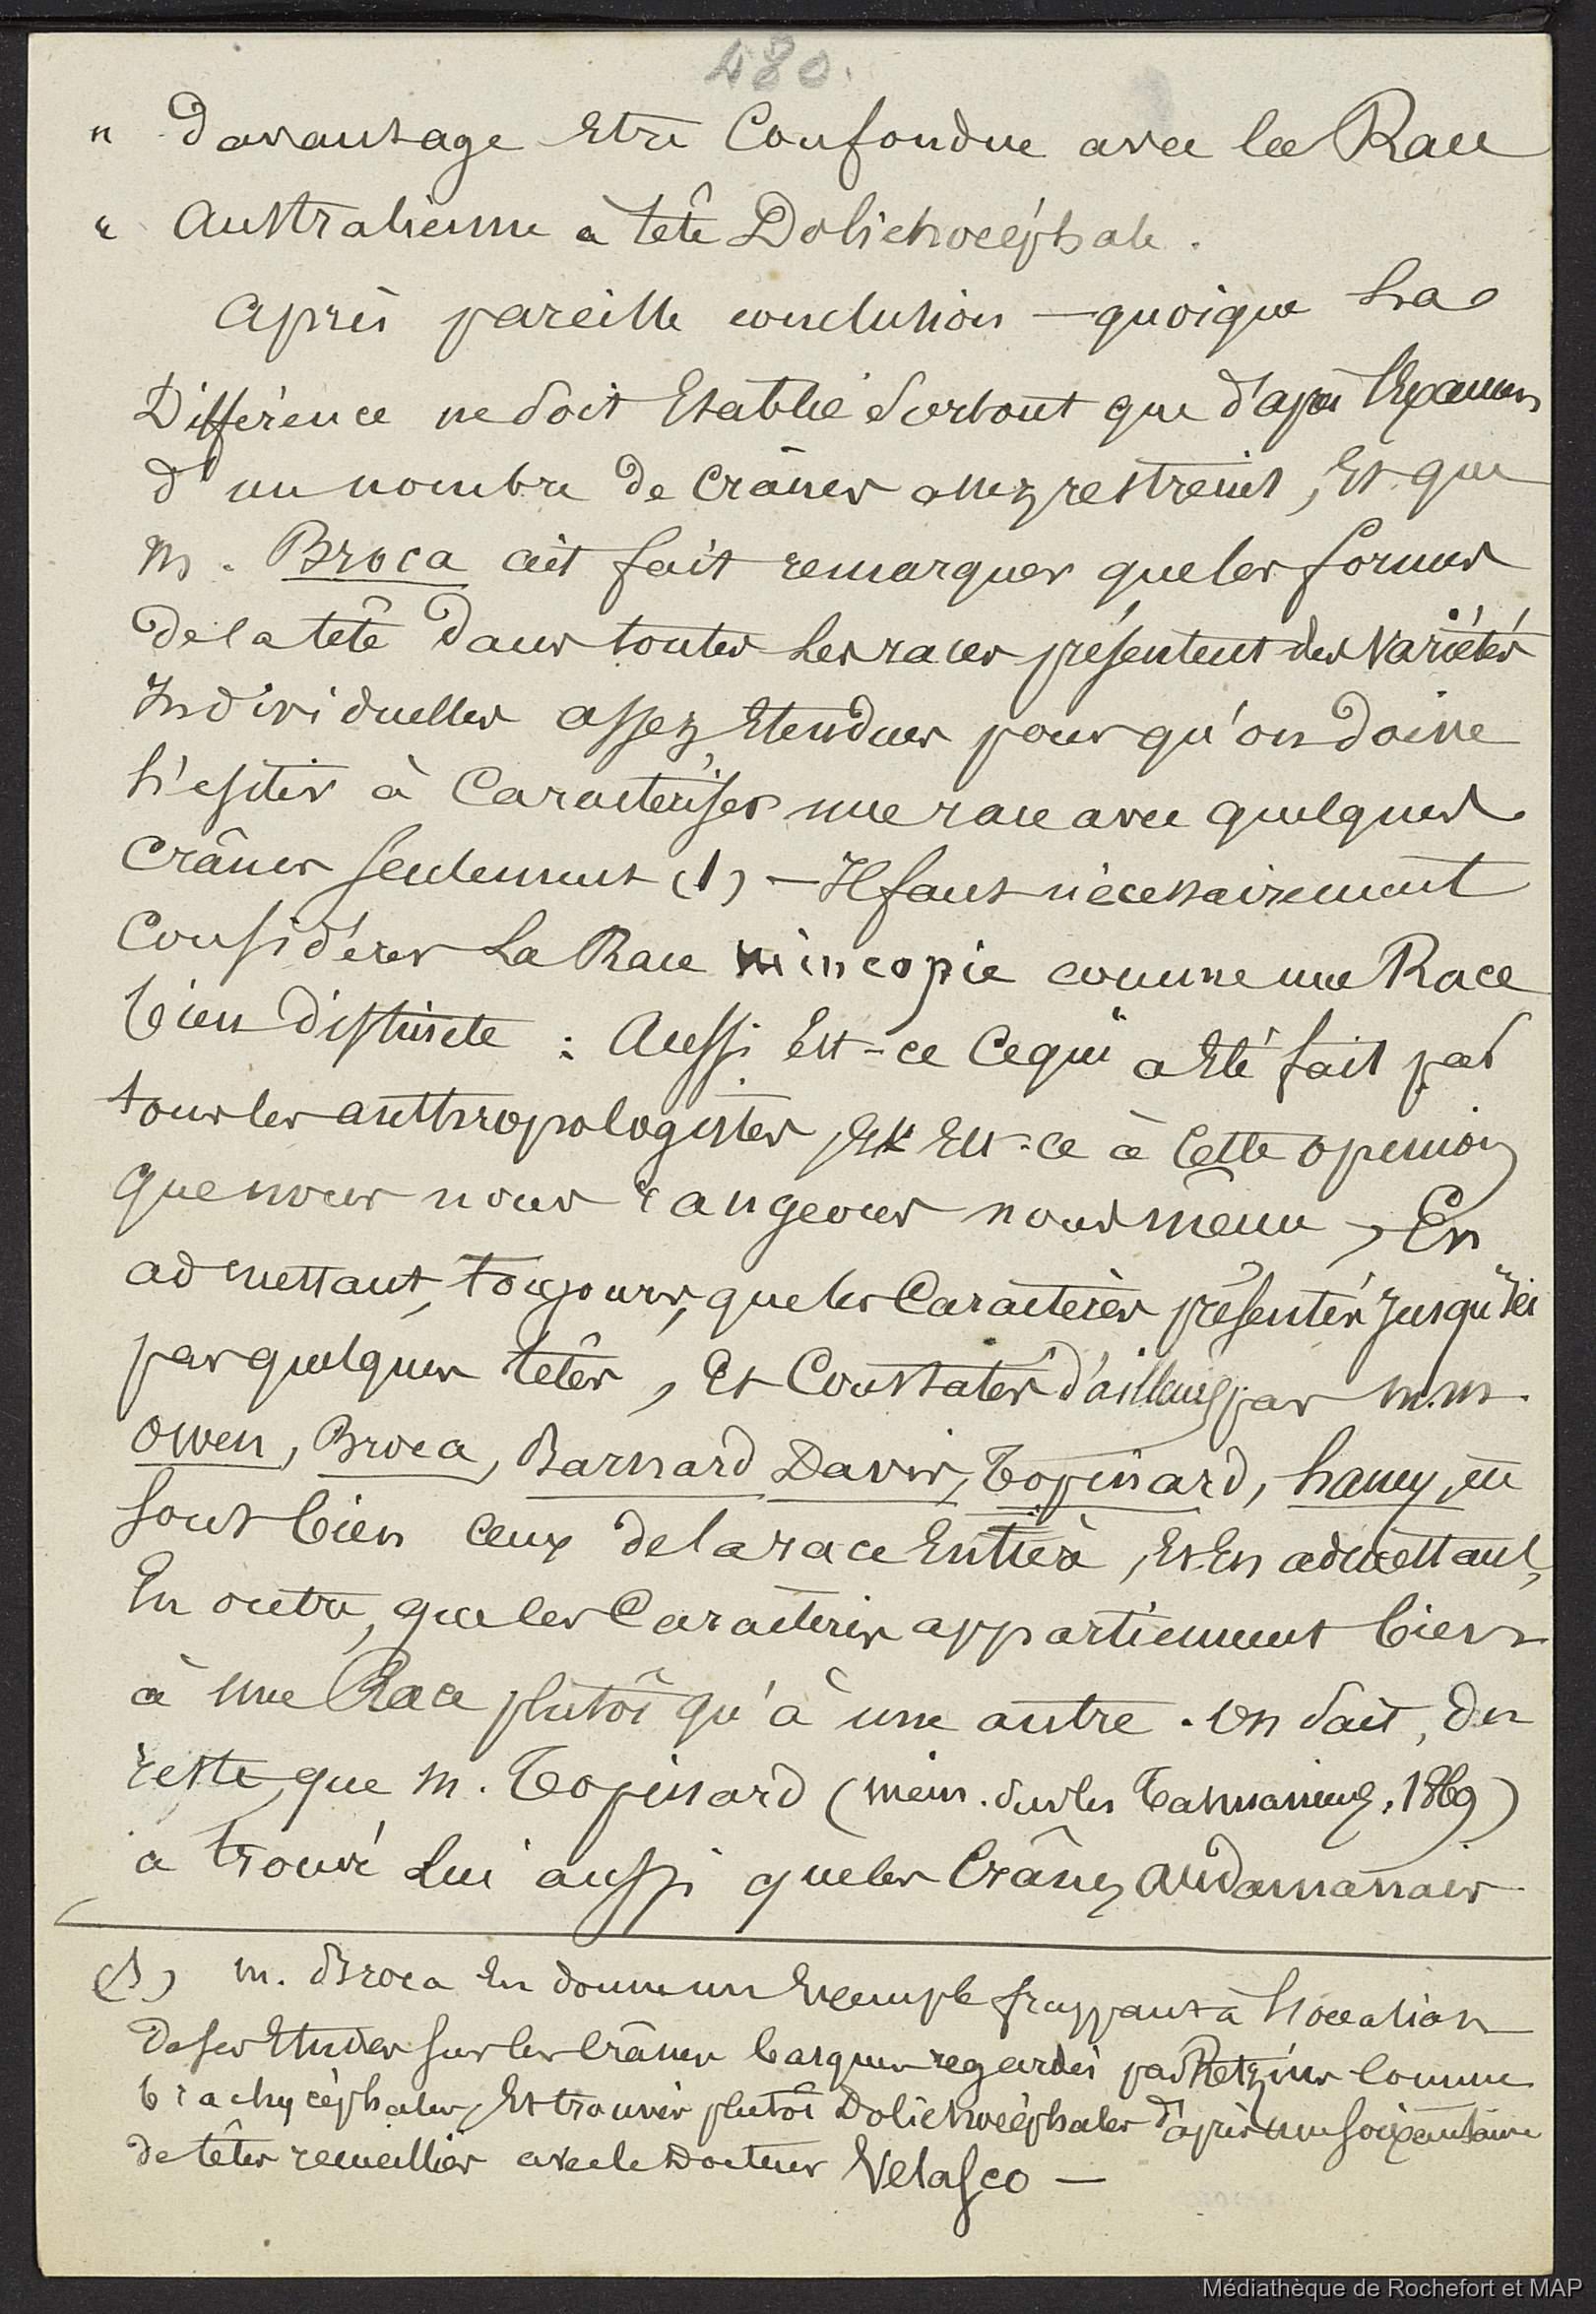 480.
" Davantage Etre Confondue avec la Race
" Australienne à tête Dolichocéphale.
Après pareille conclusion — quoique la
Différence ne soit Etablie surtout que d'après l'Examen
d'un nombre de crânes assez restreint, Et que
M. Broca ait fait remarquer que les formes
de la tête dans toutes les races présentent des variétés
Individuelles assez Etendues pour qu'on doive
hésiter à Caractériser une race avec quelques
Crânes seulement (1) — Il faut nécessairement
Considérer la Race mincopie comme une Race
bien distincte : Aussi Est-ce ce qui a Eté fait par
tous les anthropologistes, Et Est-ce à Cette opinion
que nous nous rangeons nous même, En
admettant, toujours, que les Caractères présentés jusqu'ici
par quelques têtes, Et Constatés d'ailleurs par M.M.
Owen, Broca, Barnard Davis, Topinard, hamy, en
sont bien ceux de la race Entière, Et En admettant,
En outre, que les Caractères appartiennent bien
à une Race plutôt qu'à une autre. On sait, du
reste, que M. Topinard (mém. sur les Tasmaniens, 1869)
a trouvé lui aussi que les Crânes andamanais
(1) M. Broca En donne un Exemple frappant à l'occasion
de ses Etudes sur les Crânes basques regardés par Retzius comme
brachycéphales, Et trouvés plutôt Dolichocéphales d'après une soixantaine
de têtes recueillies avec le Docteur Velasco —
Médiathèque de Rochefort et MAP